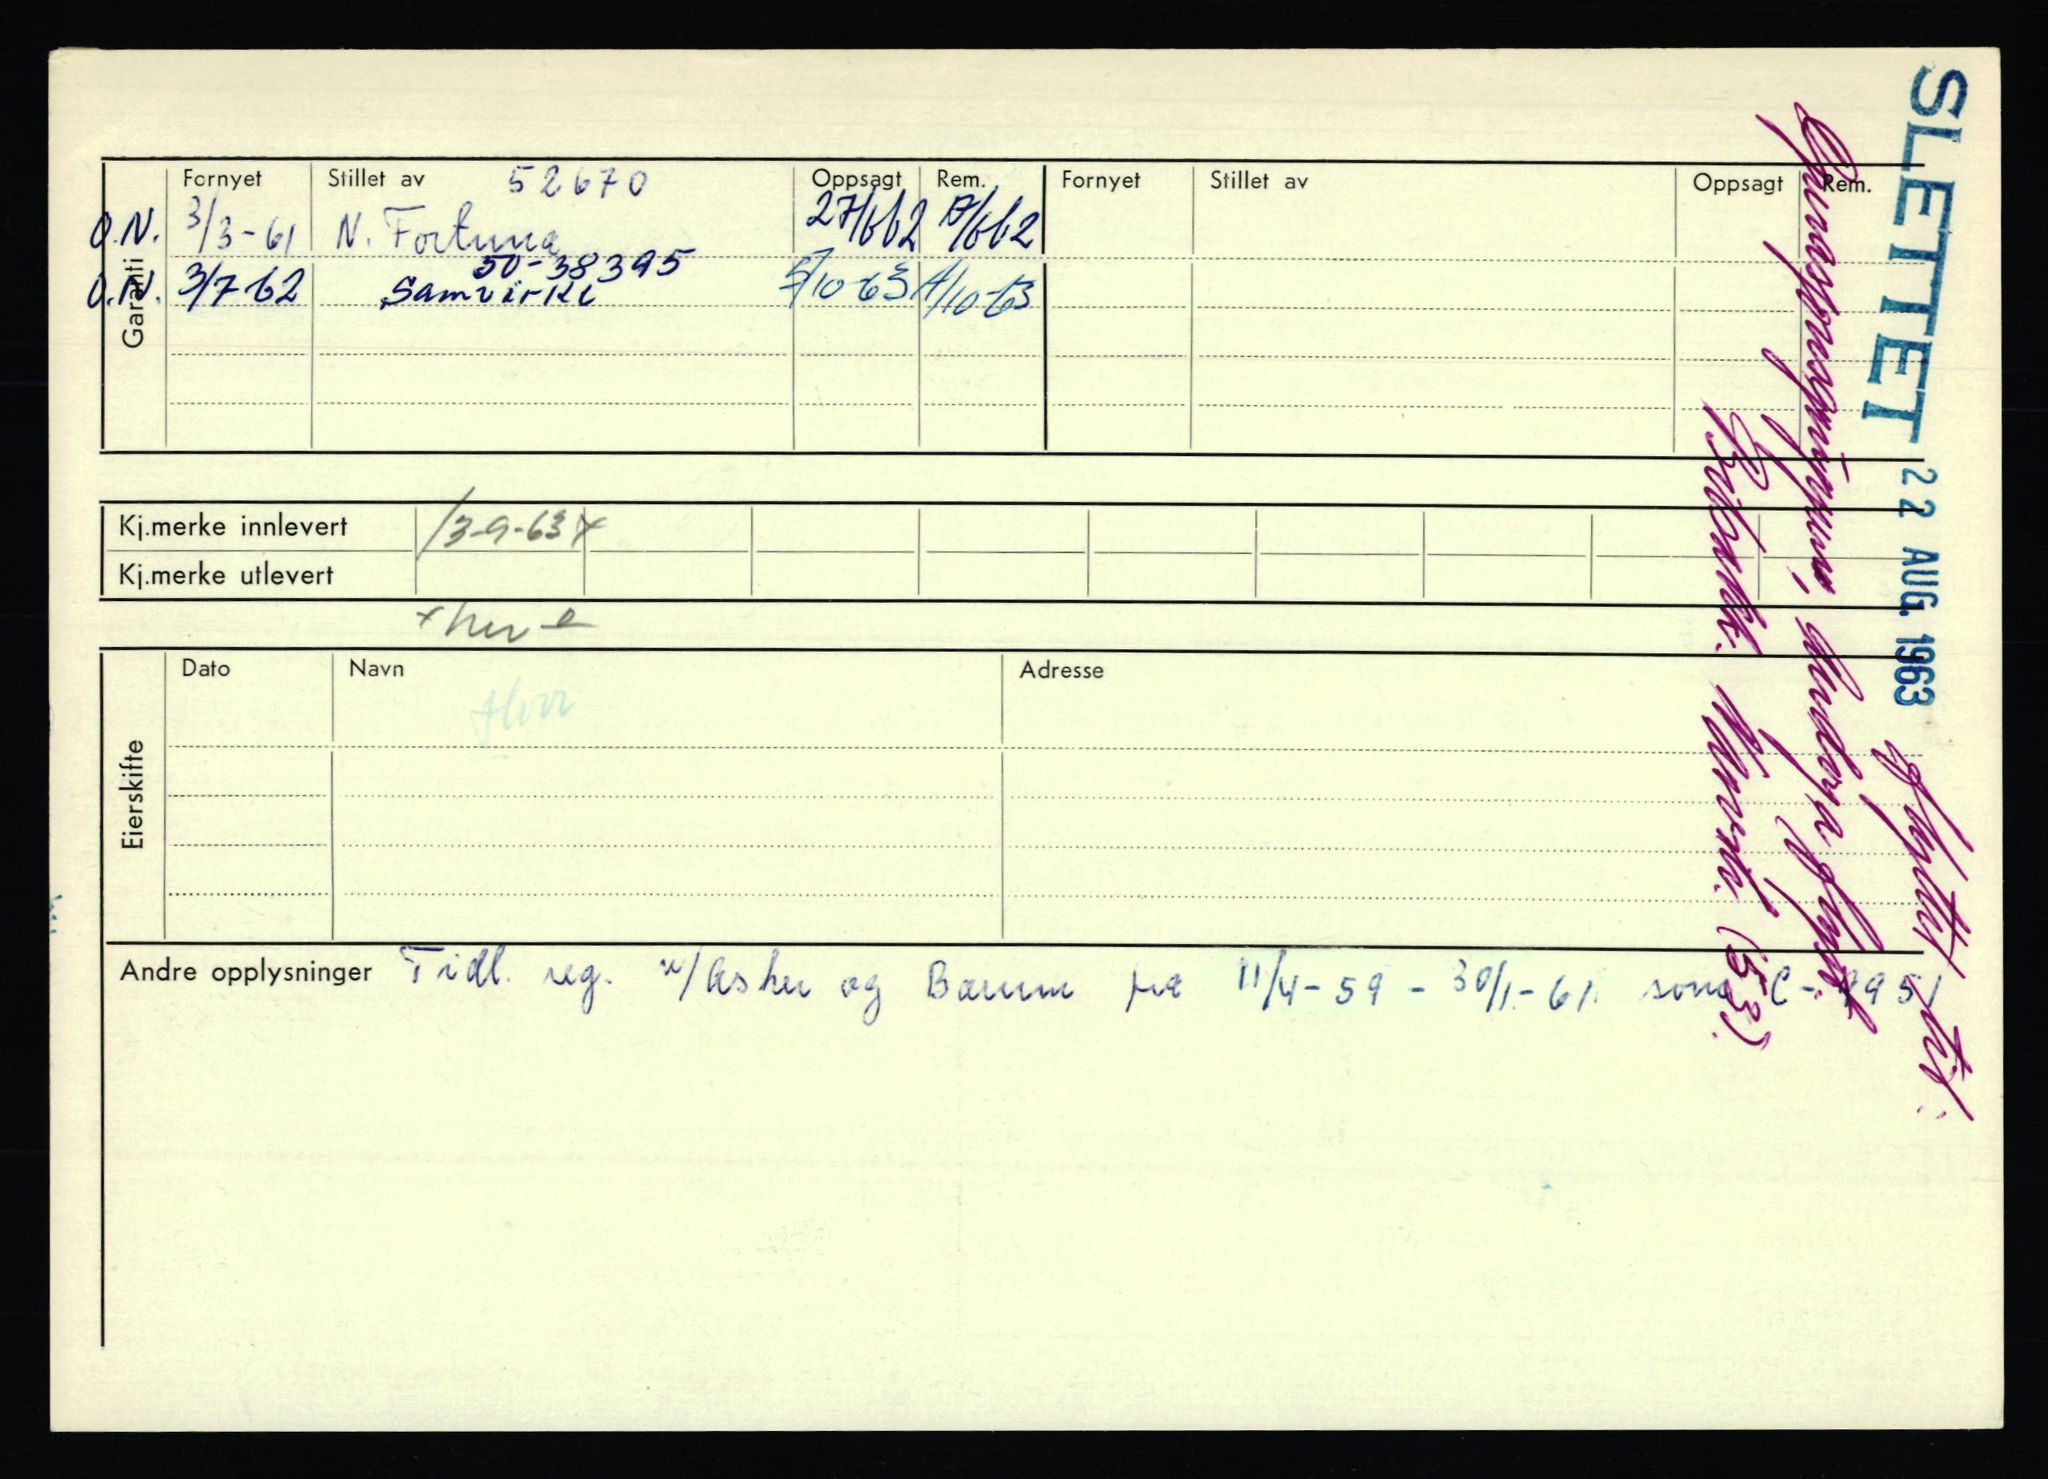 Garanti
Fornyet Stillet av 52670 Oppsagt Rem. Fornyet Stillet av Oppsagt Rem.
O.N. 3/3-61 N. Fortuna 27/662
50-38395
O.N. 3/7-62 Samvirke /10-63 /10-63
Kj.merke innlevert 13-9-63 x
Kj.merke utlevert
Eierskifte
Dato Navn Adresse
Andre opplysninger Tidl. reg. v/Asker og Bærum fra 11/4-59 - 30/1-61 som C-
SLETTET 22 AUG. 1963
Flyttet til:
(53).